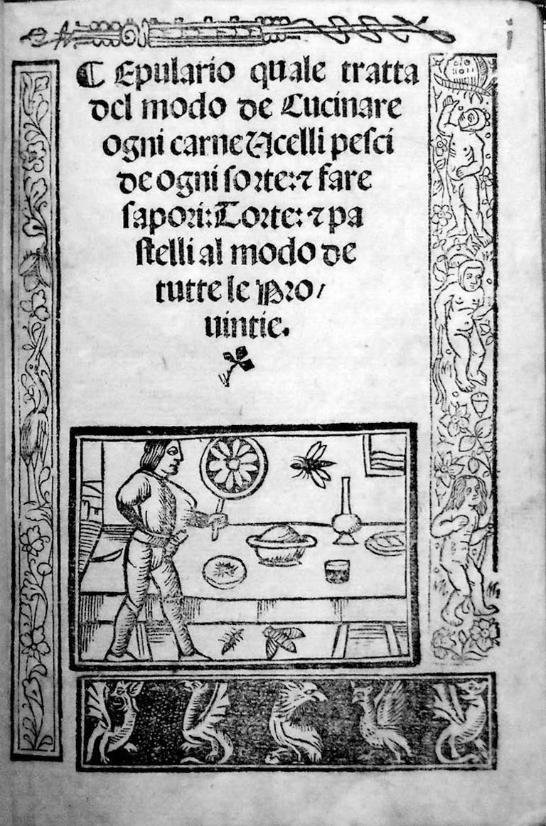 i
¶ Epulario quale tratta
del modo de Cucinare
ogni carne Ucelli pesci
de ogni sorte: ⁊ fare
sapori: Torte: ⁊ pa
stelli al modo de
tutte le Pro/
uintie.